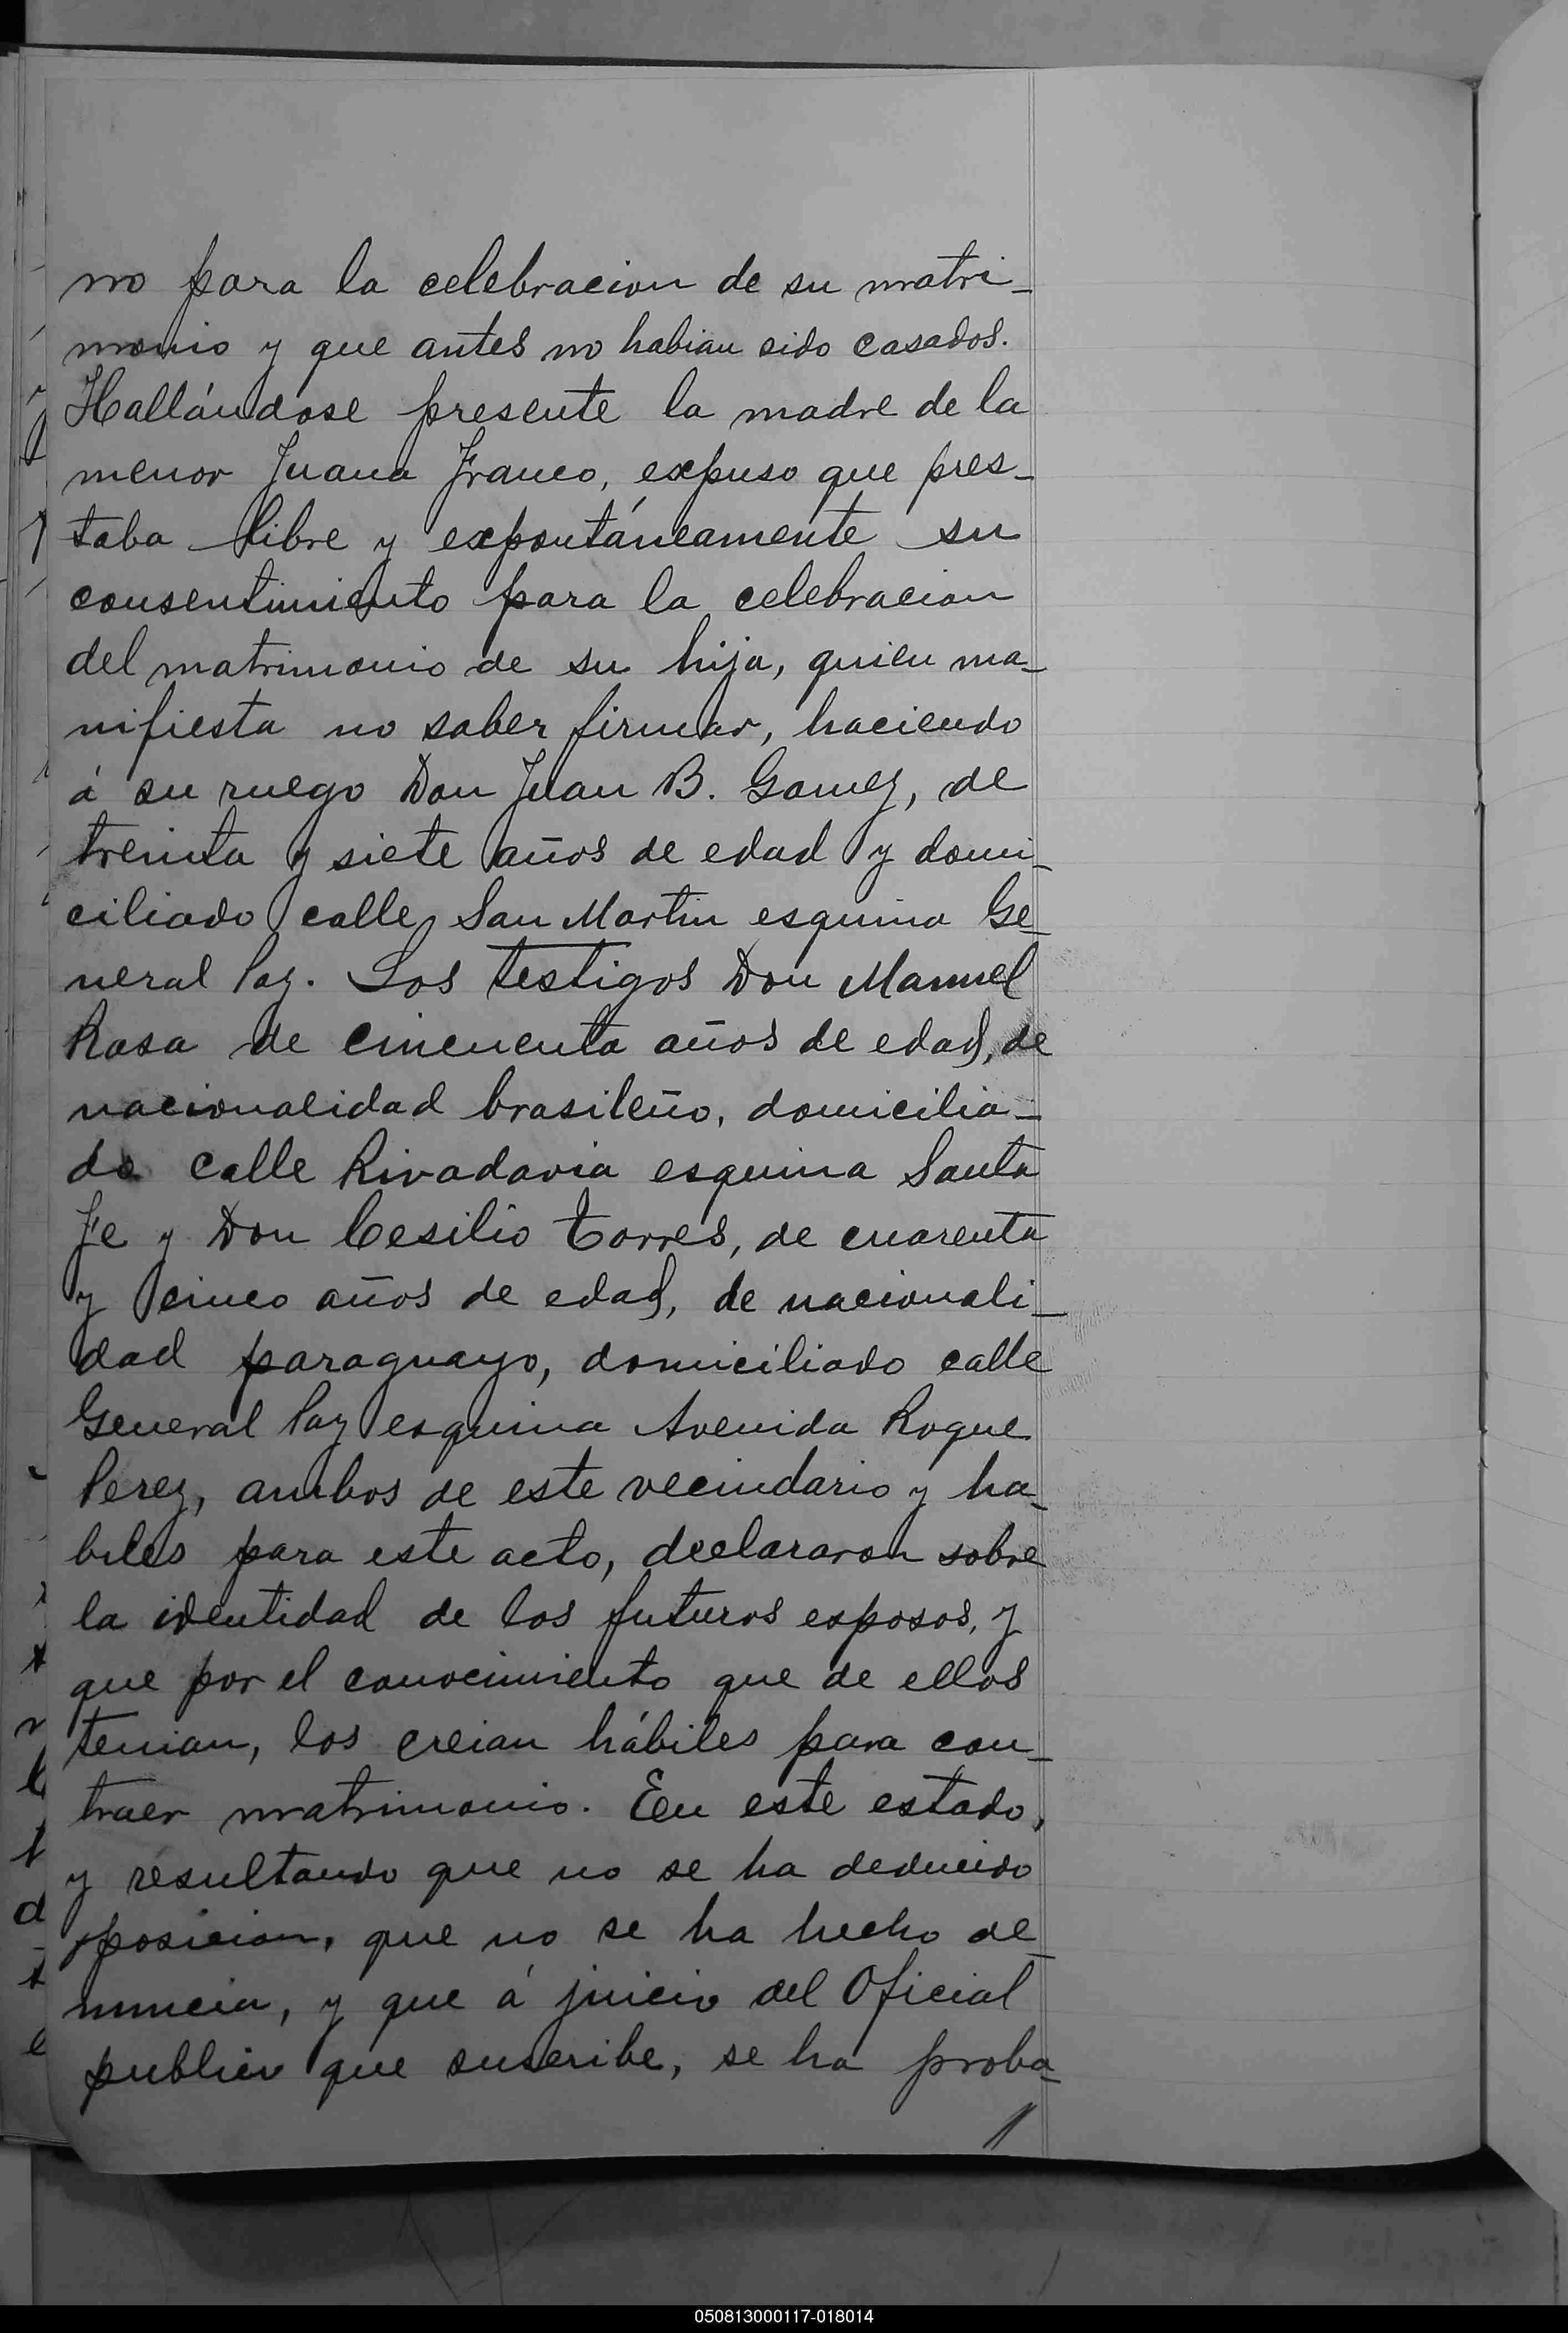 no para la celebracion de su matri-
monio y que antes no habian sido casados.
Hallándose presente la madre de la
menor Juana Franco, expuso que pres-
taba libre y expontáneamente su
consentimiento para la celebracion
del matrimonio de su hija, quien ma-
nifiesta no saber firmar, haciendo
á su ruego Don Juan B. Gomez, de
treinta y siete años de edad y domi-
ciliado calle San Martin esquina Ge-
neral Paz. Los testigos Don Manuel
Rosa de cincuenta años de edad, de
nacionalidad brasileño, domicilia-
do calle Rivadavia esquina Santa
Fe y Don Cesilio Torres, de cuarenta
y cinco años de edad, de nacionali-
dad paraguayo, domiciliado calle
General Paz esquina Avenida Roque
Perez, ambos de este vecindario y ha-
biles para este acto, declararon sobre
la identidad de los futuros esposos, y
que por el conocimiento que de ellos
tenian, los creian hábiles para con-
traer matrimonio. En este estado,
y resultando que no se ha deducido
oposicion, que no se ha hecho de-
nuncia, y que á juicio del Oficial
publico que suscribe, se ha proba-
050813000117-018014